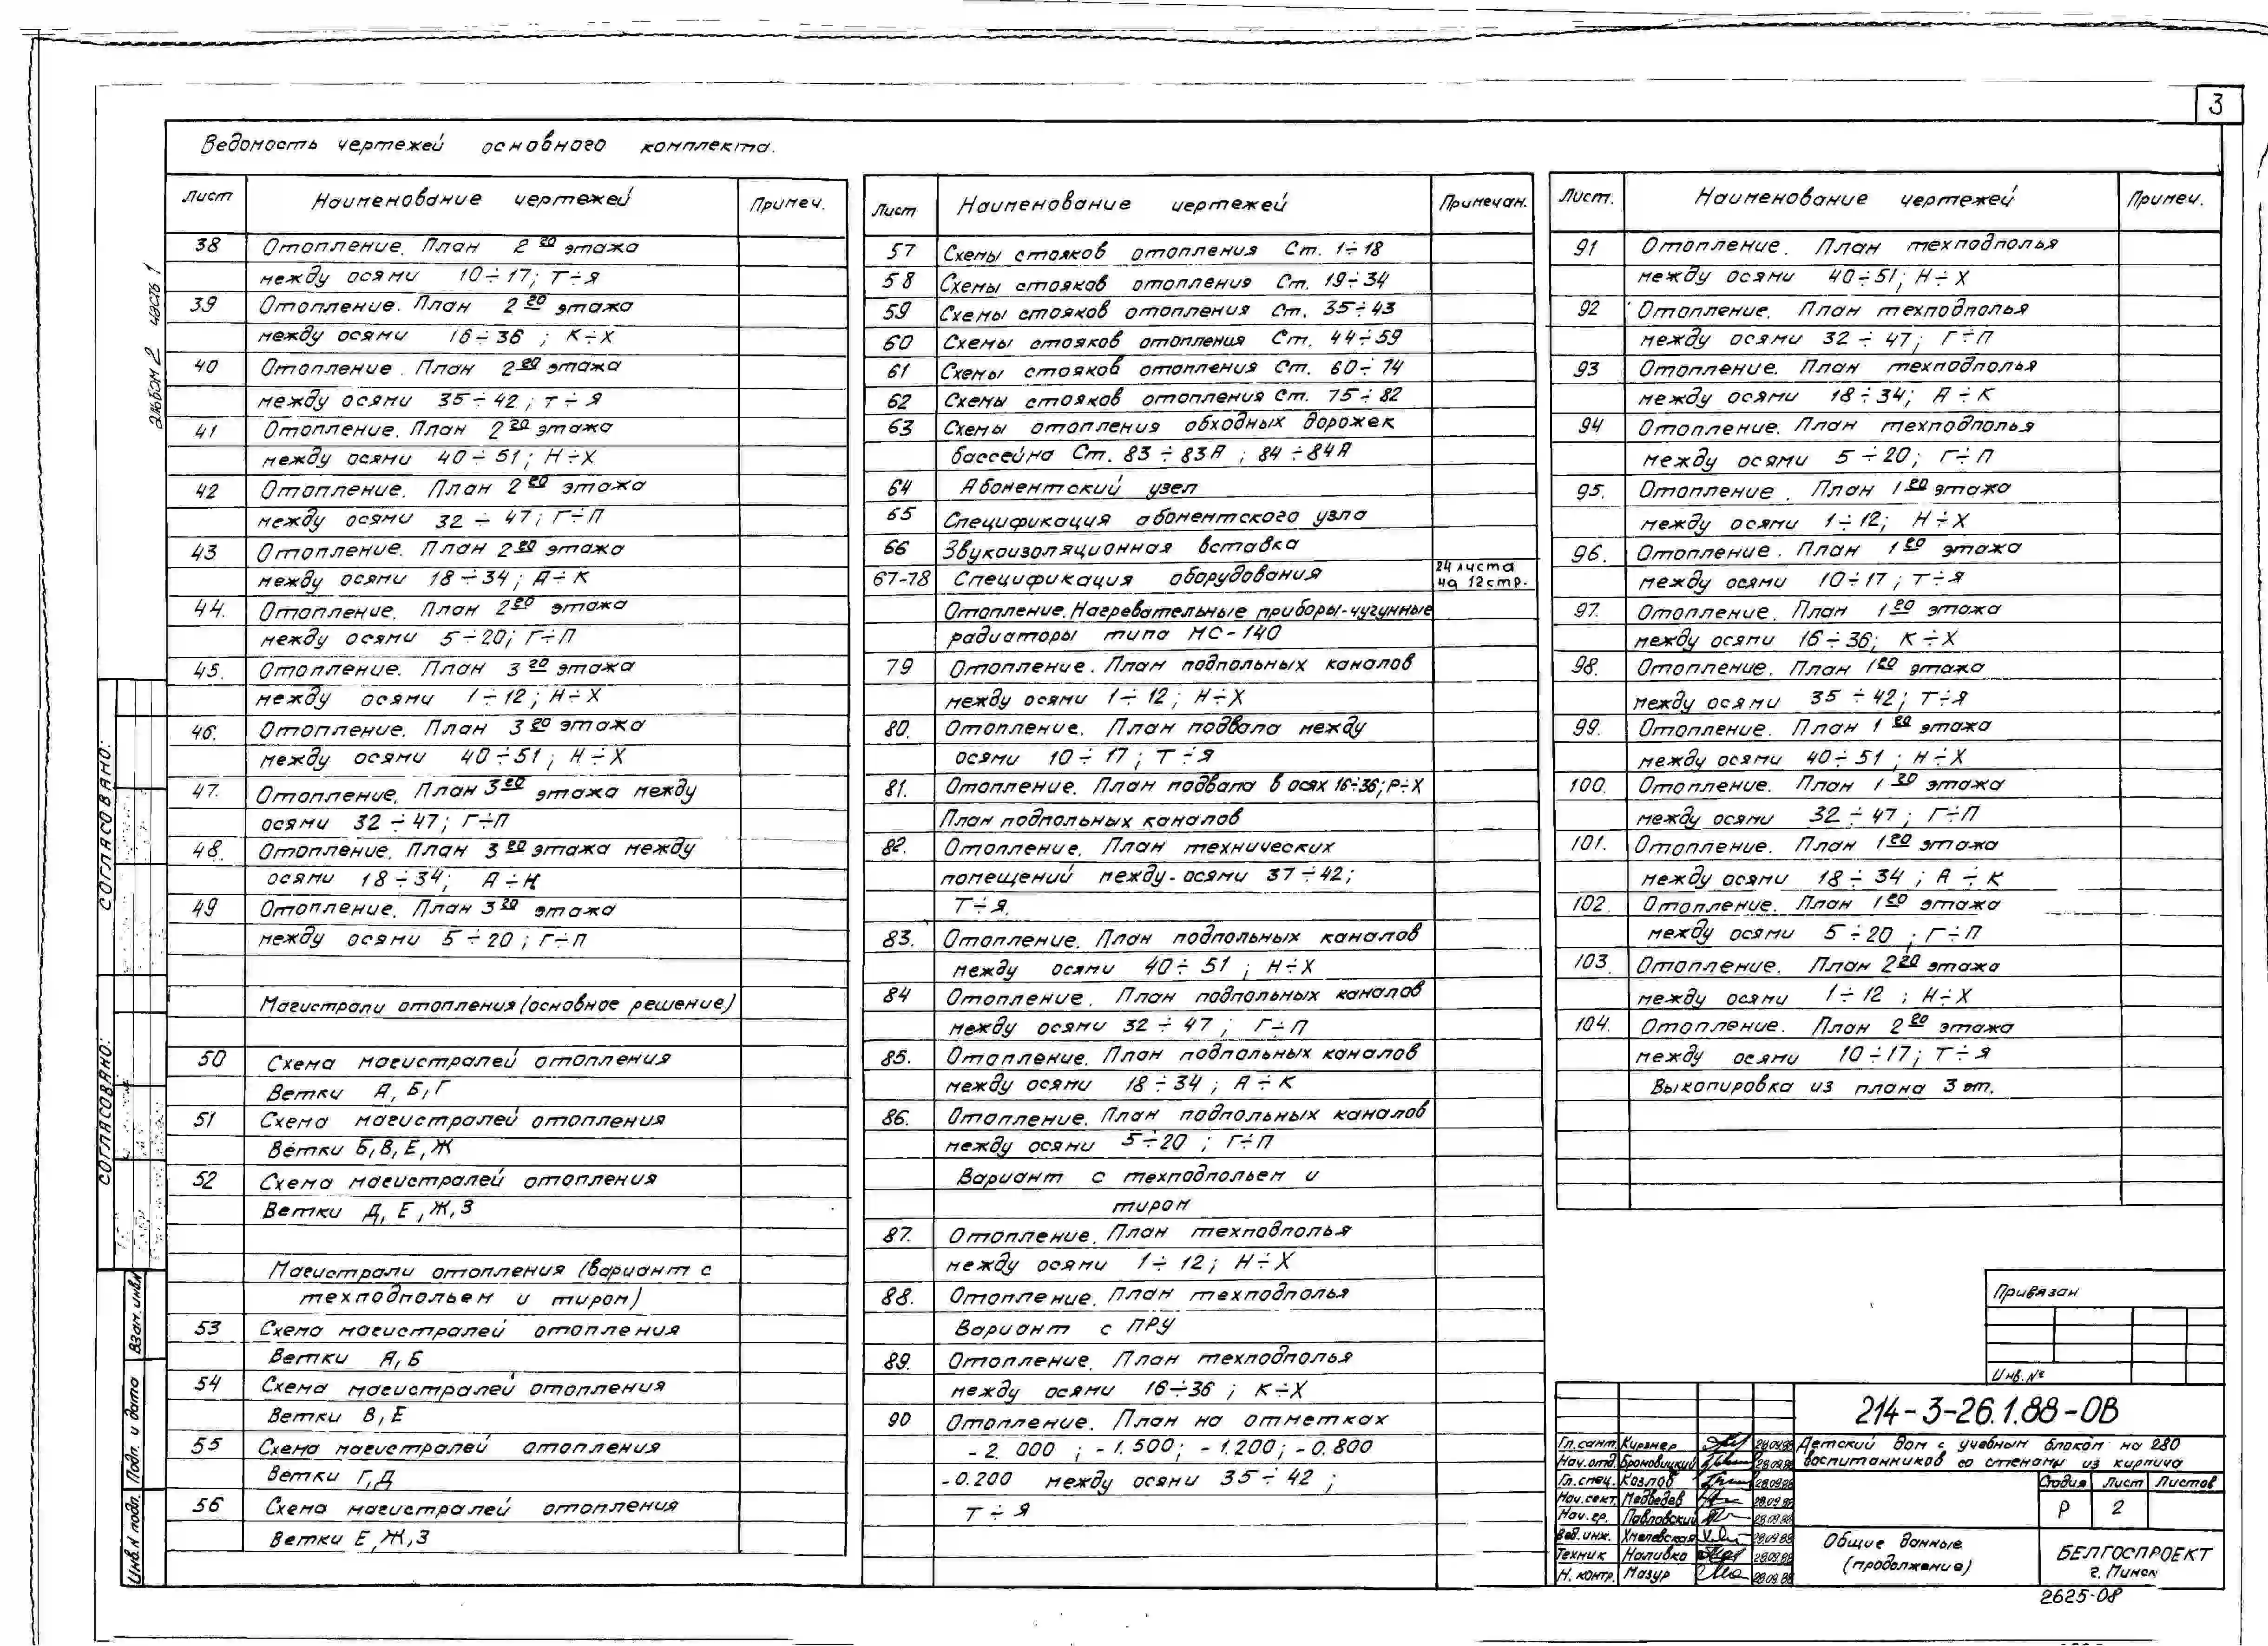 3
Ведомость чертежей основного комплекта.
Альбом 2 часть 1
Лист Наименование чертежей Примеч.
38 Отопление. План 2го этажа
между осями 10÷17; Т÷Я
39 Отопление. План 2го этажа
между осями 16÷36 ; К÷Х
40 Отопление. План 2го этажа
между осями 35÷42 ; Т÷Я
41 Отопление. План 2го этажа
между осями 40÷51; Н÷Х
42 Отопление. План 2го этажа
между осями 32÷47; Г÷П
43 Отопление. План 2го этажа
между осями 18÷34; А÷К
44. Отопление. План 2го этажа
между осями 5÷20; Г÷П
45. Отопление. План 3го этажа
между осями 1÷12; Н÷Х
46. Отопление. План 3го этажа
между осями 40÷51; Н÷Х
47. Отопление. План 3го этажа между
осями 32÷47; Г÷П
48. Отопление. План 3го этажа между
осями 18÷34; А÷К
49 Отопление. План 3го этажа
между осями 5÷20 ; Г÷П
Магистрали отопления (основное решение)
50 Схема магистралей отопления
Ветки А, Б, Г
51 Схема магистралей отопления
Ветки Б, В, Е, Ж
52 Схема магистралей отопления
Ветки Д, Е, Ж, З
Магистрали отопления (вариант с
техподпольем и тиром)
53 Схема магистралей отопления
Ветки А, Б
54 Схема магистралей отопления
Ветки В, Е
55 Схема магистралей отопления
Ветки Г, Д
56 Схема магистралей отопления
Ветки Е, Ж, З
Лист Наименование чертежей Примечан.
57 Схемы стояков отопления Ст. 1÷18
58 Схемы стояков отопления Ст. 19÷34
59 Схемы стояков отопления Ст. 35÷43
60 Схемы стояков отопления Ст. 44÷59
61 Схемы стояков отопления Ст. 60÷74
62 Схемы стояков отопления Ст. 75÷82
63 Схемы отопления обходных дорожек
бассейна Ст. 83÷83А ; 84÷84А
64 Абонентский узел
65 Спецификация абонентского узла
66 Звукоизоляционная вставка
67-78 Спецификация оборудования 24 листа на 12 стр.
Отопление. Нагревательные приборы-чугунные
радиаторы типа МС-140
79 Отопление. План подпольных каналов
между осями 1÷12; Н÷Х
80. Отопление. План подвала между
осями 10÷17; Т÷Я
81. Отопление. План подвала в осях 16÷36; Р÷Х
План подпольных каналов
82. Отопление. План технических
помещений между осями 37÷42;
Т÷Я.
83. Отопление. План подпольных каналов
между осями 40÷51 ; Н÷Х
84 Отопление. План подпольных каналов
между осями 32÷47 ; Г÷П
85. Отопление. План подпольных каналов
между осями 18÷34 ; А÷К
86. Отопление. План подпольных каналов
между осями 5÷20 ; Г÷П
Вариант с техподпольем и
тиром
87. Отопление. План техподполья
между осями 1÷12; Н÷Х
88. Отопление. План техподполья
Вариант с ПРУ
89. Отопление. План техподполья
между осями 16÷36 ; К÷Х
90 Отопление. План на отметках
-2.000 ; -1.500; -1.200; -0.800
-0.200 между осями 35÷42 ;
Т÷Я
Лист. Наименование чертежей Примеч.
91 Отопление. План техподполья
между осями 40÷51; Н÷Х
92 Отопление. План техподполья
между осями 32÷47; Г÷П
93 Отопление. План техподполья
между осями 18÷34; А÷К
94 Отопление. План техподполья
между осями 5÷20; Г÷П
95. Отопление. План 1го этажа
между осями 1÷12; Н÷Х
96. Отопление. План 1го этажа
между осями 10÷17; Т÷Я
97. Отопление. План 1го этажа
между осями 16÷36; К÷Х
98. Отопление. План 1го этажа
между осями 35÷42; Т÷Я
99. Отопление. План 1го этажа
между осями 40÷51 ; Н÷Х
100. Отопление. План 1го этажа
между осями 32÷47 ; Г÷П
101. Отопление. План 1го этажа
между осями 18÷34 ; А÷К
102. Отопление. План 1го этажа
между осями 5÷20 ; Г÷П
103. Отопление. План 2го этажа
между осями 1÷12 ; Н÷Х
104. Отопление. План 2го этажа
между осями 10÷17; Т÷Я
Выкопировка из плана 3 эт.
Привязан
Инв. №
214-3-26.1.88-ОВ
Гл. сант. Кирзнер 28.09.88
Нач. отд. Броновицкий 28.09.88
Гл. спец. Козлов 28.09.88
Нач. сект. Медведев 28.09.88
Нач. гр. Павловский 28.09.88
Вед. инж. Хмелевская 28.09.88
Техник Наливко 28.09.88
Н. контр. Мазур 28.09.88
Детский дом с учебным блоком на 280
воспитанников со стенами из кирпича
Стадия Лист Листов
Р 2
Общие данные
(продолжение)
БЕЛГОСПРОЕКТ
г. Минск
2625-08
СОГЛАСОВАНО:
СОГЛАСОВАНО:
Взам. инв.№
Подп. и дата
Инв. № подл.